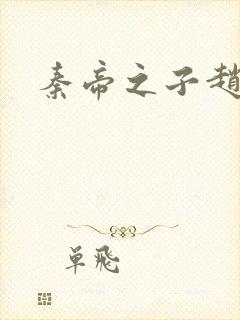 秦帝之子趙
單飛